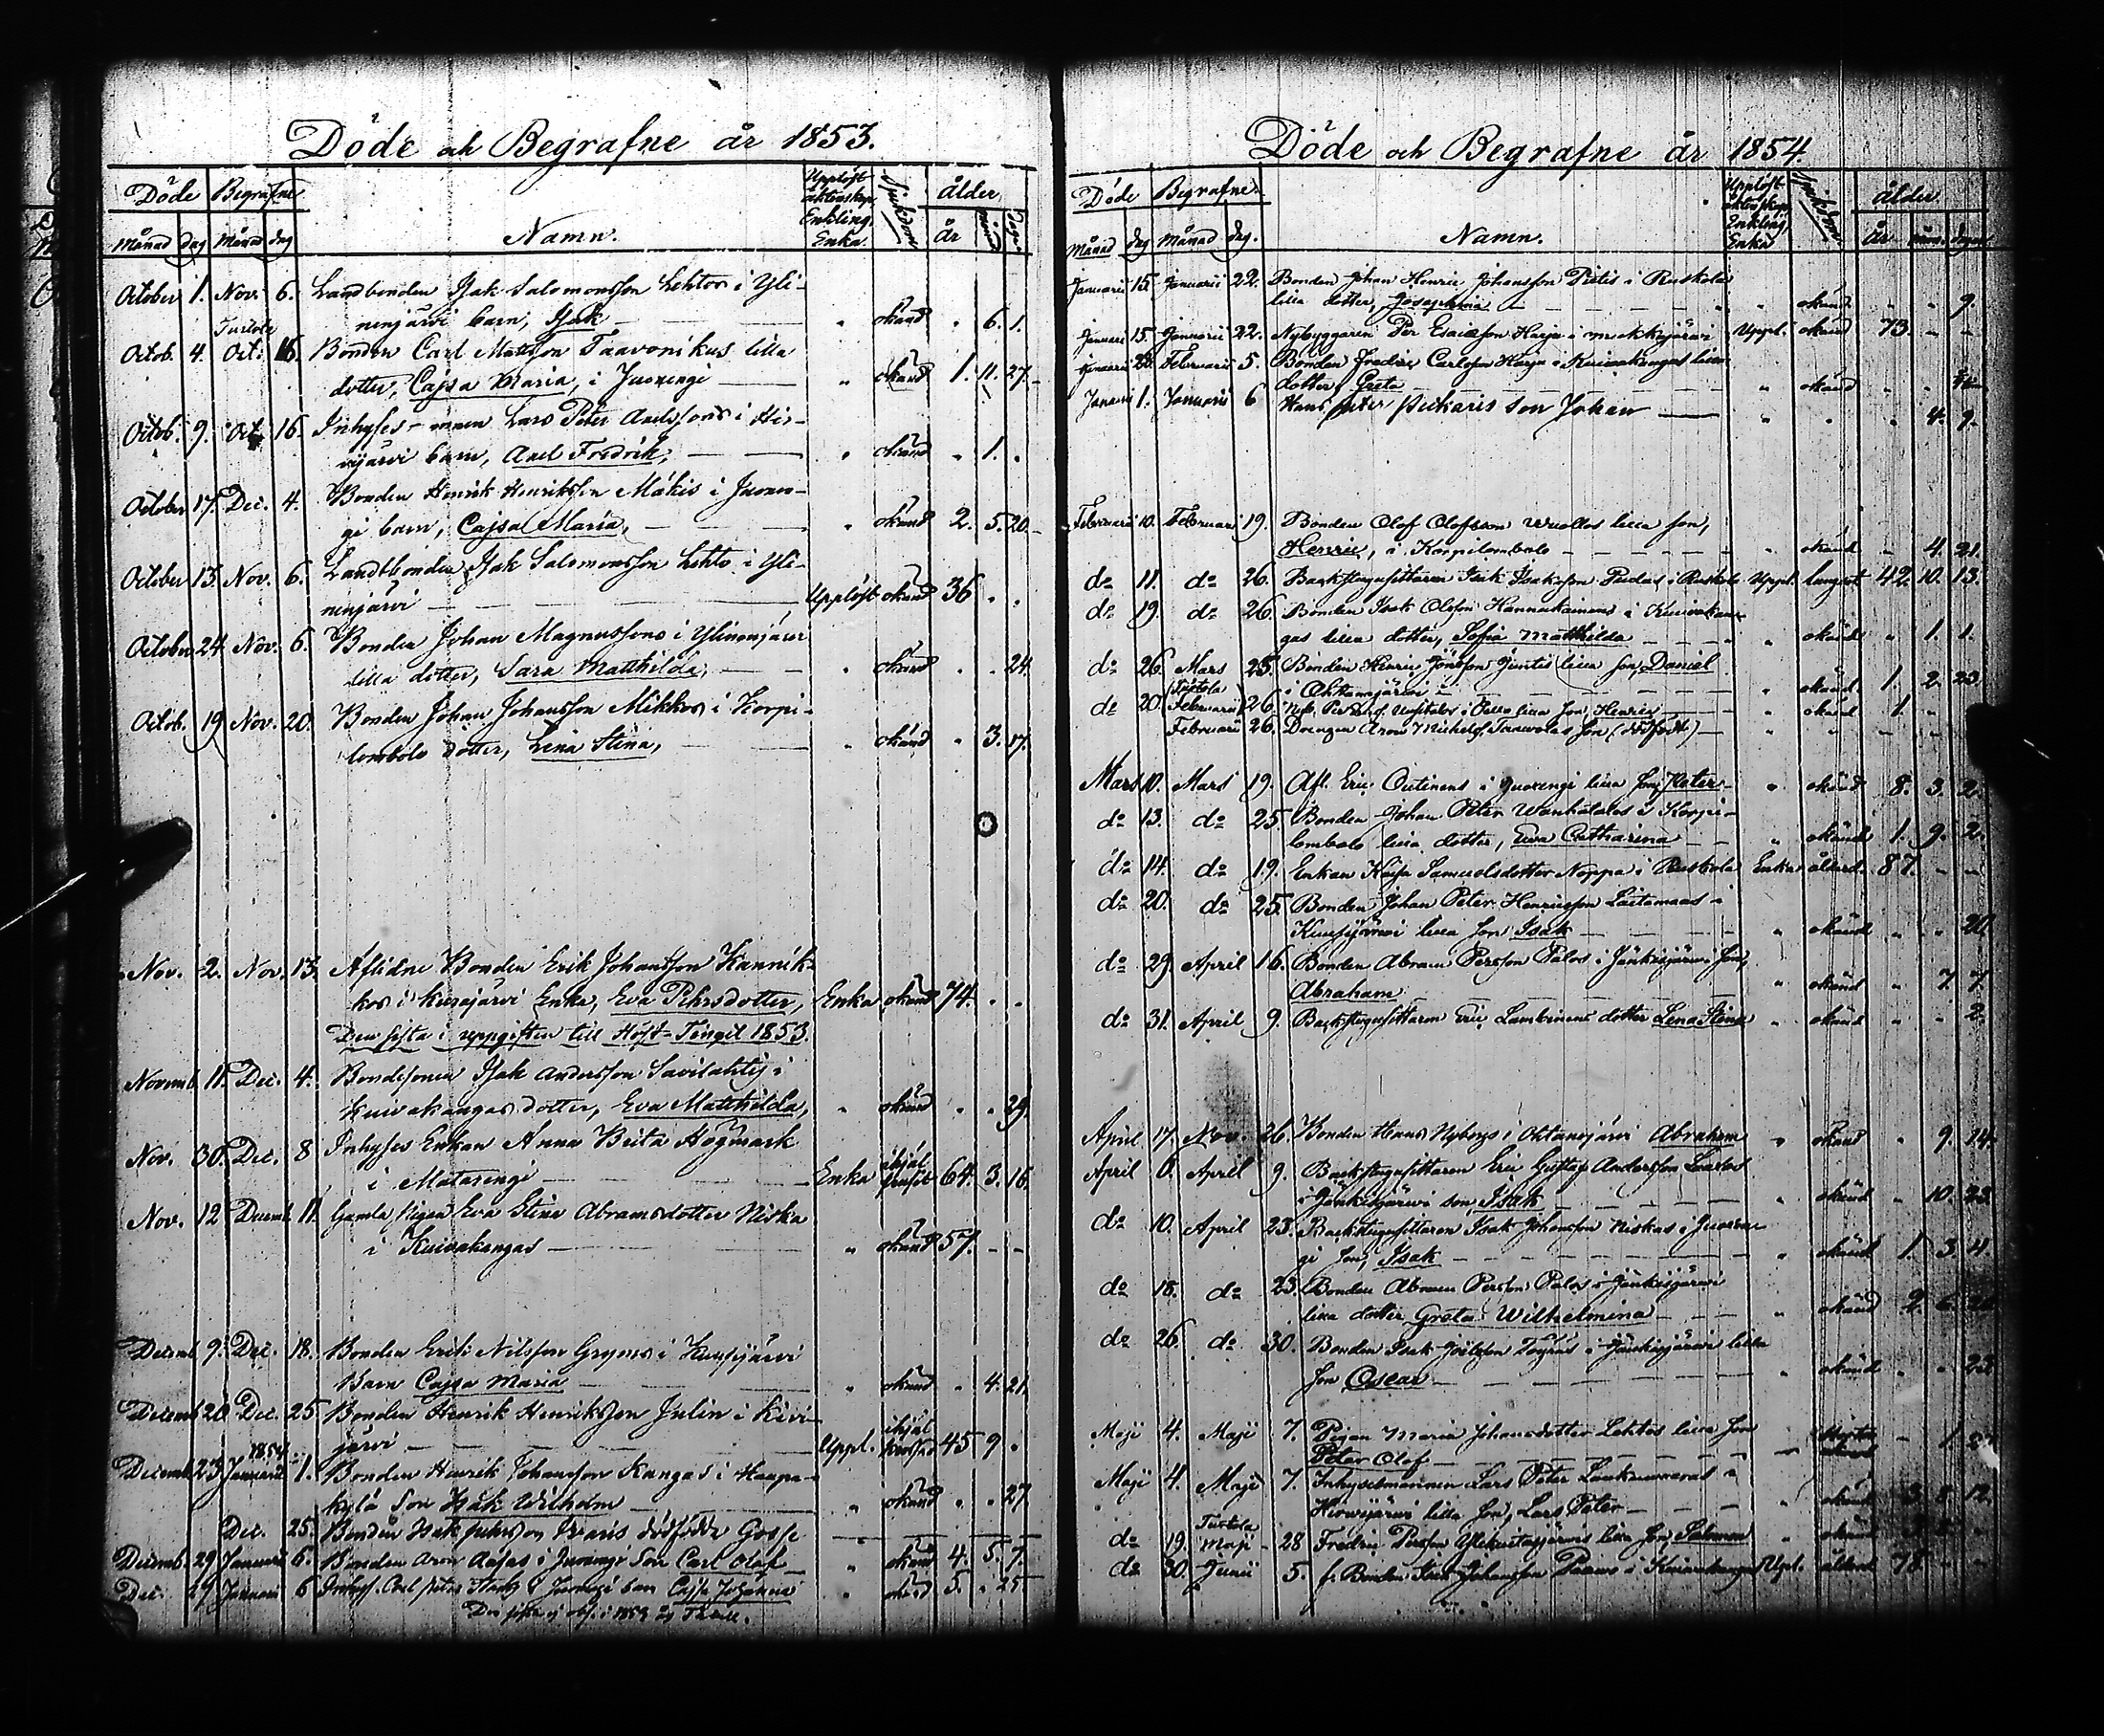 Döde och Begrafne år 1853.
Döde Begrafne Namn. Upplöst äktenskap, Enkling, Enka. Sjukdom ålder
Månad dag Månad dag år månad dagar
October 1. Nov. 6. Landbonden Isak Salomonsson Lehtos i Yli-
ninjärvi barn, Isak — " okänd " 6. 1.
Turtola
Octob. 4. Oct. 16. Bonden Carl Mattsson Taavonikus lilla
dotter, Cajsa Maria, i Juoxengi — " okänd 1. 11. 27.
Octob. 9. Oct. 16. Inhyses-man Lars Peter Axelssons i Hir-
vijärvi barn, Axel Fredrik, — " okänd " 1. "
October 17. Dec. 4. Bonden Henrik Henriksson Mäkis i Juoxen-
gi barn, Cajsa Maria, — " okänd 2. 5. 20.
October 13. Nov. 6. Landtbonden Isak Salomonsson Lehto i Yli-
ninjärvi — Upplöst okänd 36 " "
October 24. Nov. 6. Bonden Johan Magnussons i Ylinenjärvi
lilla dotter, Sara Matthilda, — " okänd " " 24.
Octob. 19 Nov. 20. Bonden Johan Johansson Mikkos i Korpi-
lombolo dotter, Lena Stina, — " okänd " 3. 17.
Nov. 2. Nov. 13. Aflidne Bonden Erik Johansson Kannik-
kos i Kuusijärvi Enka, Eva Pehrsdotter, Enka okänd 74. " "
Den sista i uppgiften till Höst-Tinget 1853.
Novemb. 11. Dec. 4. Bondesonen Isak Andersson Savilahtis i
Kuivakangas dotter, Eva Matthilda, " okänd " " 29.
Nov. 30. Dec. 8 Inhyses Enkan Anna Brita Högmark
i Matarengi — Enka ihjäl frusit 64. 3. 16.
Nov. 12 Decemb. 11 Gamla Pigan Eva Stina Abramsdotter Niska
i Kuivakangas — " okänd 57. - -
Decemb. 9. Dec. 18. Bonden Erik Nilsson Gryms i Kuusijärvi
Barn Cajsa Maria — " okänd " 4. 21.
Decemb. 20 Dec. 25 Bonden Henrik Henriksson Julin i Kivi-
järvi — Uppl. ihjäl 45 9 "
1854
Decemb. 23 Januarii 1. Bonden Henrik Johansson Kangas i Haapa-
kylä Son Isak Wilhelm — " okänd " " 27.
Dec. 25. Bonden Isak dödfödde Gosse
Decemb. 29 Januarii 6. Bonden Aron i Juoxengi Son Carl Olof " okänd 4. 5. 7.
Dec. 29 Januarii 6 Inhys. Carl Peter i Juoxengi barn Cajsa Johanna " okänd 5. " 25
Döde och Begrafne år 1854.
Döde Begrafne Namn. Upplöst äktenskap, Enkling, Enka Sjukdom ålder
Månad dag Månad dag. år mån. dagar
Januarii 15. Januarii 22. Bonden Johan Henric Johansson Pietis i Ruskola
lilla dotter, Josephina — " okänd " " 9.
Januari 15. Januarii 22. Nybyggaren Per Esaiasson Harja i Uppl. okänd 73. - -
Februarii 5. Bonden Fredric Carlsson Harja i Kuivakangas lilla
dotter Greta — " okänd
Januarii 1. Januarii 6 Hans Peter son Johan — " " " 4. 9.
Februarii 10. Februarii 19. Bonden Olof Olofsson Wuollos lilla son,
Henric, i Korpilombolo — " okänd - 4. 21.
do 11. do 26. Backstugusittaren Isak Isaksson Pudas i Ruskola Uppl. lungsot 42. 10. 13.
do 19. do 26 Bonden Isak Olsson Hannukainens i Kuivakan-
gas lilla dotter, Sofia Matthilda — " okänd " 1. 1.
do 26. Mars 25. Bonden Henric Jönsson Juntis lilla son, Daniel
i Ohtanajärvi — " okänd 1. 2. 23.
Turtola
do 20. Februarii 26 i Pello lilla Son Henric — " okänd 1. -
Februarii 26. Drengen Aron Taavolas Son (dödfödt) —
Mars 10. Mars 19. Afl. Eric Outinens i Juoxengi lilla Son, Peter — " okänd 8. 3. 2.
do 13. do 25. Bonden Johan Peter Wanhatalos i Korpi-
lombolo lilla dotter, Eva Catharina — " okänd 1. 9. 2.
do 14. do 19. Enkan Kajsa Samuelsdotter Noppa i Ruskola Enka ålderd. 87. - -
do 20. do 25. Bonden Johan Peter Henricsson Laitamaas i
Kuusijärvi lilla Son Isak — " okänd " " 20
do 29. April 16. Bonden Abram Persson Palos i Jänkisjärvi Son,
Abraham — " okänd " 7. 7.
do 31. April 9. Backstugusittaren Eric Lambinens dotter Lena Stina " okänd " " 2.
April 17. Nov. 26. Bonden Hans Nybergs i Ohtanajärvi Abraham " okänd " 9. 14.
April 6. April 9. Backstugusittaren Eric Gustaf Andersson
i Jänkisjärvi son, Isak — " okänd " 10. 23.
do 10. April 23. Backstugusittaren Isak Johansson Niskas i Juoxen-
gi Son, Isak — " okänd 1. 3. 4.
do 18. do 23. Bonden Abram Persson Palos i Jänkisjärvi
lilla dotter Greta Wilhelmina — " okänd 2. 6.
do 26. do 30. Bonden Isak i Jänkisjärvi lilla
Son Oscar — " okänd " " 23
Maji 4. Maji 7. Pigan Maria Johansdotter Lehtos lilla Son
Peter Olof — - 1
Maji 4. Maji 7. Inhysesmannen Lars Peter i
Hirvijärvi lilla Son, Lars Peter — " okänd 12.
Turtola
do 19. Maji 28 Fredric Persson lilla Son, Salomon " okänd
do 30. Junii 5. f. Bonden Isak Johansson i Kuivakangas Uppl. ålderd. 78 - -